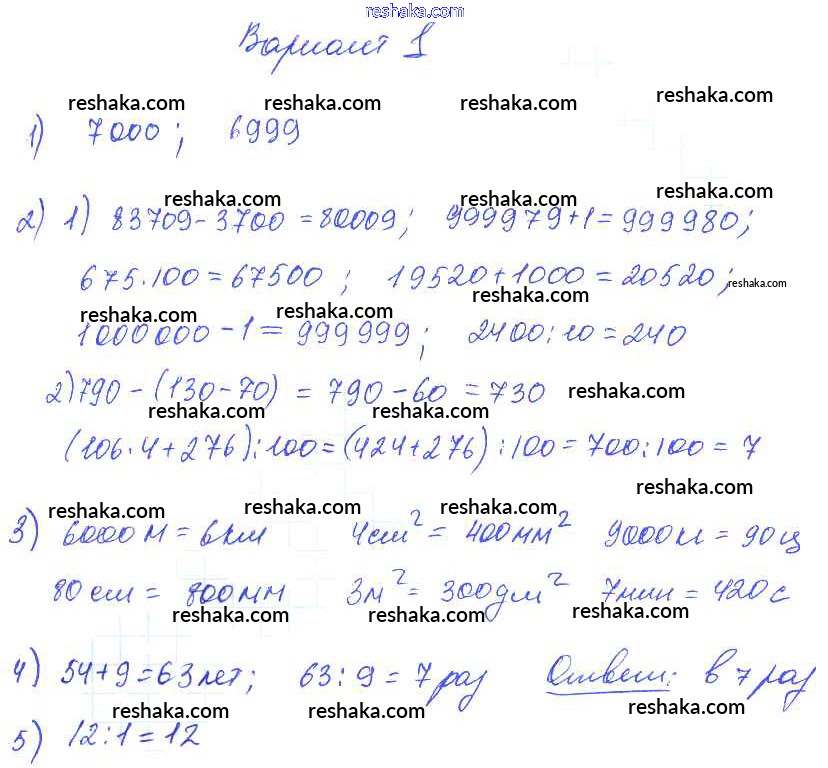 reshaka.com
Вариант 1
reshaka.com reshaka.com reshaka.com reshaka.com
1) 7000; 6999
reshaka.com reshaka.com reshaka.com
2) 1) 83709-3700=80009; 999979+1=999980;
reshaka.com reshaka.com reshaka.com
675·100=67500; 19520+1000=20520;
reshaka.com reshaka.com reshaka.com reshaka.com
1000000-1=999999; 2400:10=240
2) 790-(130-70) = 790-60=730 reshaka.com
reshaka.com reshaka.com
(106·4+276):100=(424+276):100=700:100=7
reshaka.com reshaka.com reshaka.com
3) 6000м=6км 4см²=400мм² 9000кг=90ц
80см=800мм 3м²=300дм² 7мин=420с
reshaka.com reshaka.com reshaka.com
4) 54+9=63лет; 63:9=7раз Ответ: в 7 раз
reshaka.com reshaka.com reshaka.com
5) 12:1=12